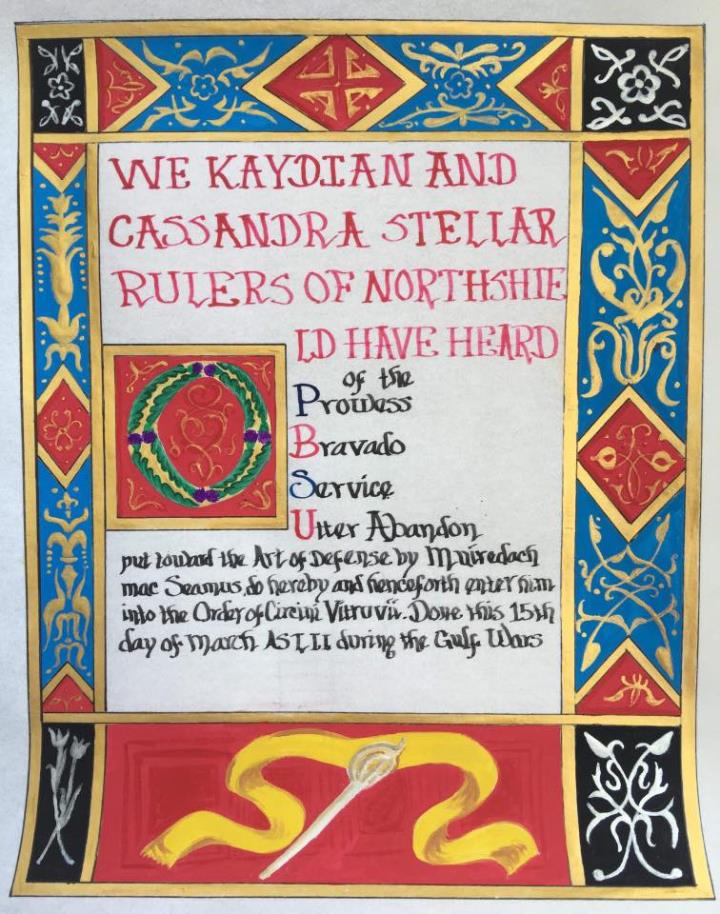 WE KAYDIAN AND
CASSANDRA STELLAR
RULERS OF NORTHSHIE
LD HAVE HEARD
of the
Prowess
Bravado
Service
Utter Abandon
put toward the Art of Defense by Muiredach
mac Seamus, do hereby and henceforth enter him
into the Order of Circini Vitruvii. Done this 15th
day of March AS LII during the Gulf Wars